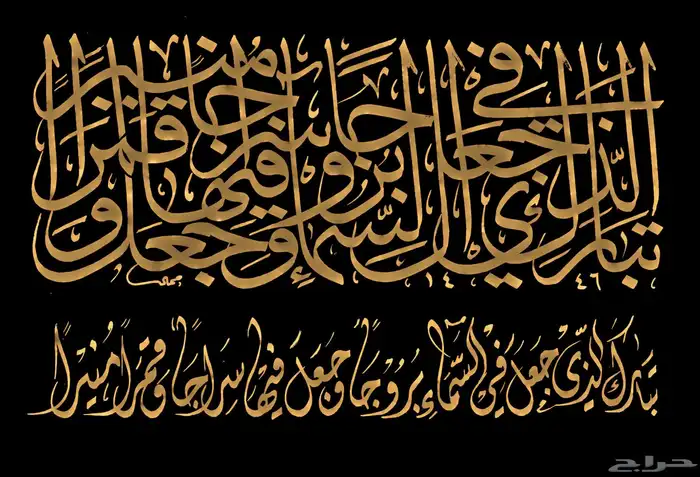 تبارك الذي جعل في السماء بروجا وجعل فيها سراجا وقمرا منيرا
١٤٤٦
تَبَارَكَ الَّذِي جَعَلَ فِي السَّمَاءِ بُرُوجًا وَجَعَلَ فِيهَا سِرَاجًا وَقَمَرًا مُنِيرًا
حراج